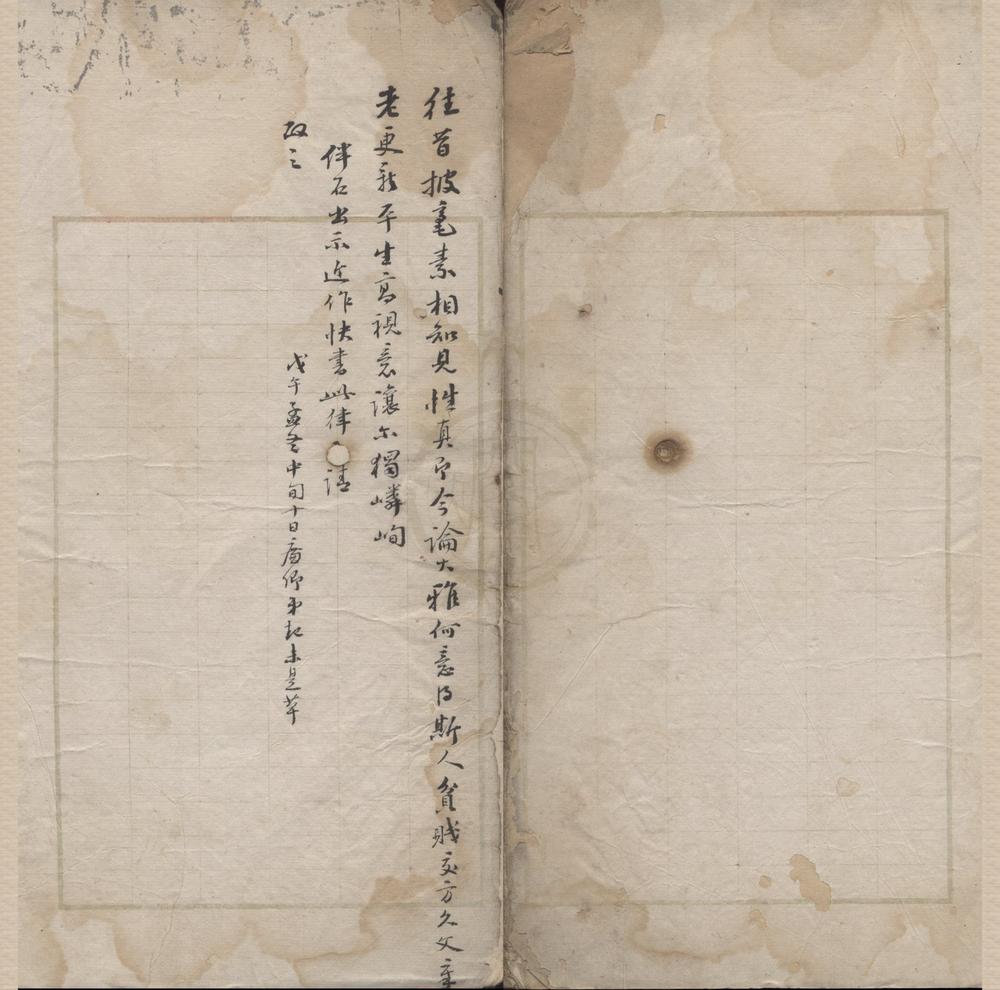 往昔披毫素相知見性真即今論大雅何意得斯人貧賤交方久文章
老更新平生高視意讓尓獨嶙峋
伴石出示近作快書此律 請
政之
戊午孟冬中旬十日 弟 未是草